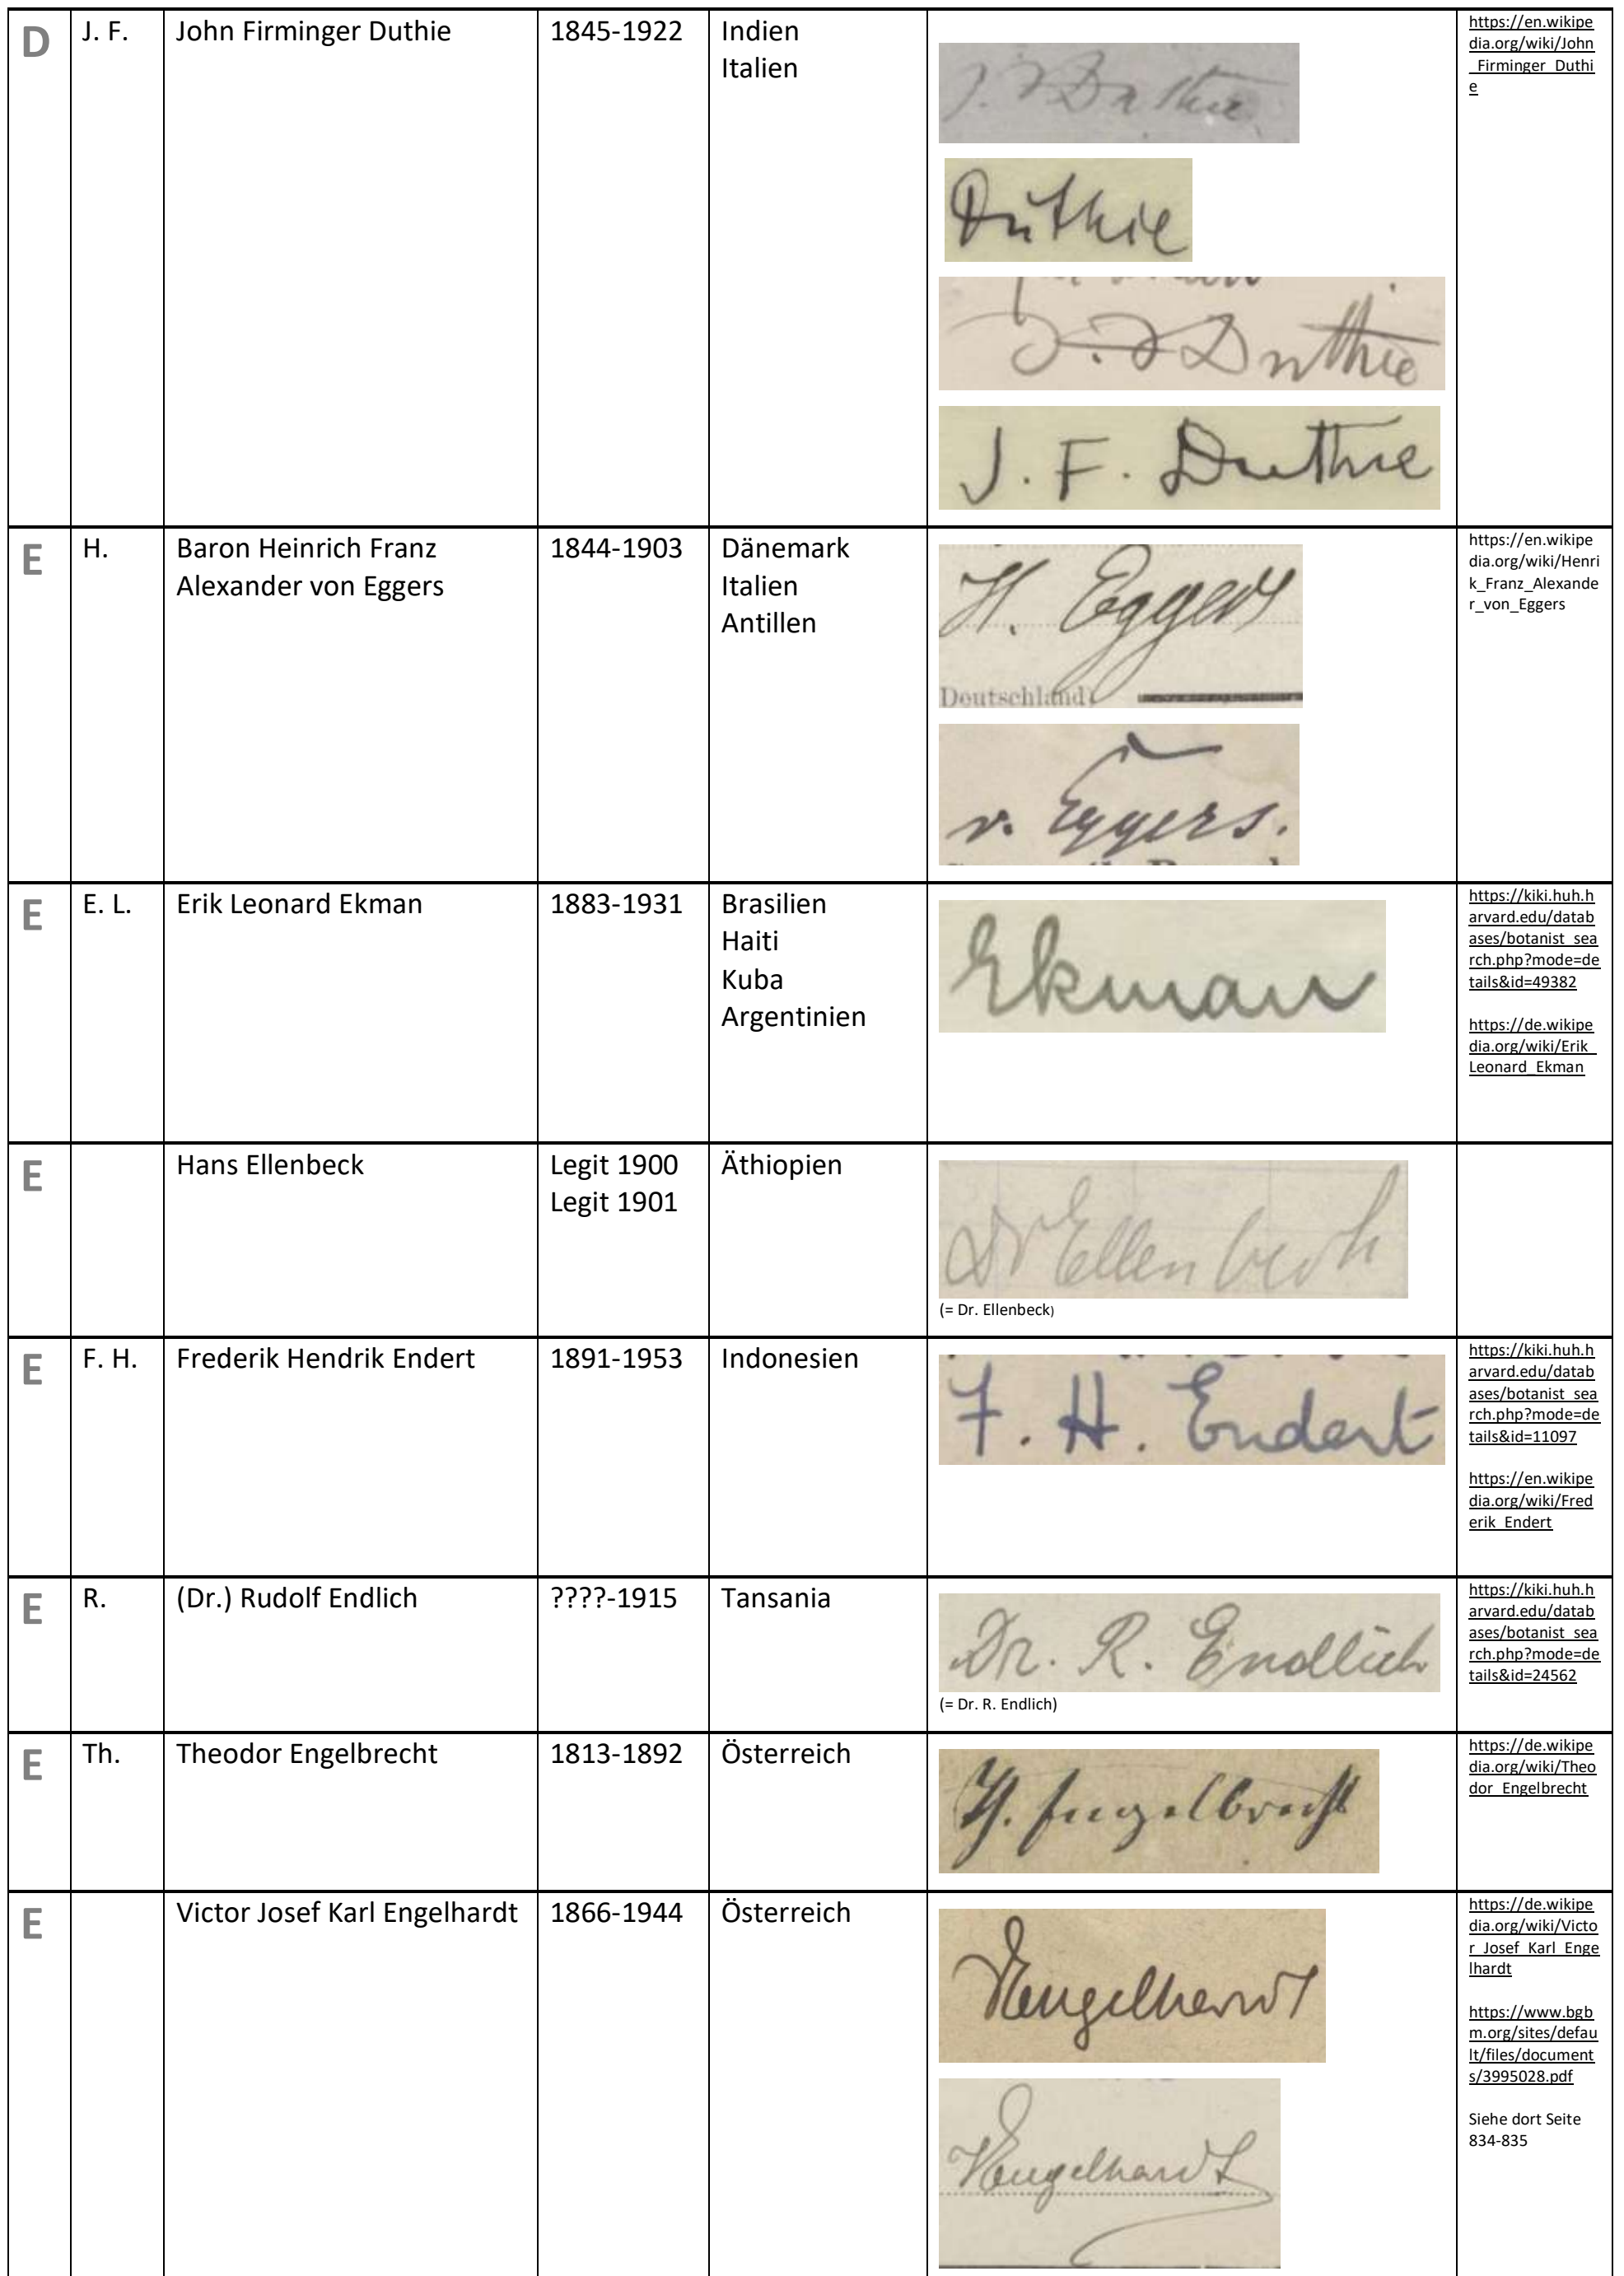 D
J. F.
John Firminger Duthie
1845-1922
Indien
Italien
J. F. Duthie
Duthie
J. F. Duthie
J. F. Duthie
https://en.wikipe
dia.org/wiki/John
_Firminger_Duthi
e
E
H.
Baron Heinrich Franz
Alexander von Eggers
1844-1903
Dänemark
Italien
Antillen
H. Eggers
Deutschland)
v. Eggers.
https://en.wikipe
dia.org/wiki/Henri
k_Franz_Alexande
r_von_Eggers
E
E. L.
Erik Leonard Ekman
1883-1931
Brasilien
Haiti
Kuba
Argentinien
Ekman
https://kiki.huh.h
arvard.edu/datab
ases/botanist_sea
rch.php?mode=de
tails&id=49382
https://de.wikipe
dia.org/wiki/Erik_
Leonard_Ekman
E
Hans Ellenbeck
Legit 1900
Legit 1901
Äthiopien
Dr Ellenbeck
(= Dr. Ellenbeck)
E
F. H.
Frederik Hendrik Endert
1891-1953
Indonesien
F. H. Endert
https://kiki.huh.h
arvard.edu/datab
ases/botanist_sea
rch.php?mode=de
tails&id=11097
https://en.wikipe
dia.org/wiki/Fred
erik_Endert
E
R.
(Dr.) Rudolf Endlich
????-1915
Tansania
Dr. R. Endlich
(= Dr. R. Endlich)
https://kiki.huh.h
arvard.edu/datab
ases/botanist_sea
rch.php?mode=de
tails&id=24562
E
Th.
Theodor Engelbrecht
1813-1892
Österreich
Th. Engelbrecht
https://de.wikipe
dia.org/wiki/Theo
dor_Engelbrecht
E
Victor Josef Karl Engelhardt
1866-1944
Österreich
VEngelhardt
VEngelhardt
https://de.wikipe
dia.org/wiki/Victo
r_Josef_Karl_Enge
lhardt
https://www.bgb
m.org/sites/defau
lt/files/document
s/3995028.pdf
Siehe dort Seite
834-835